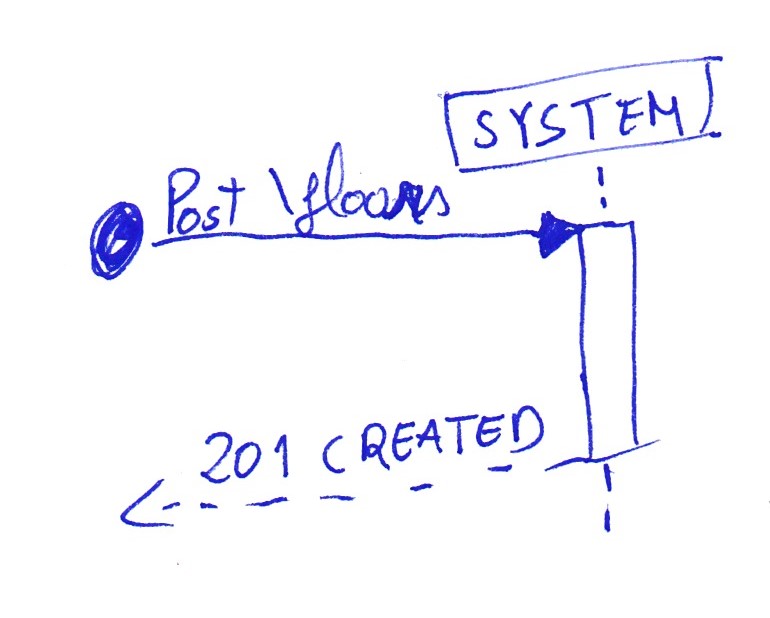 SYSTEM
Post
201 CREATED